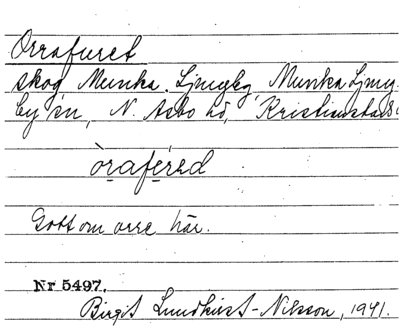 Orrafuret
skog Munka. Ljungby, Munka Ljung-
by sn, N. Åsbo hd, Kristianstads
òraféred
Gott om orre här.
Nr 5497.
Birgit Lundkvist-Nilsson, 1941.